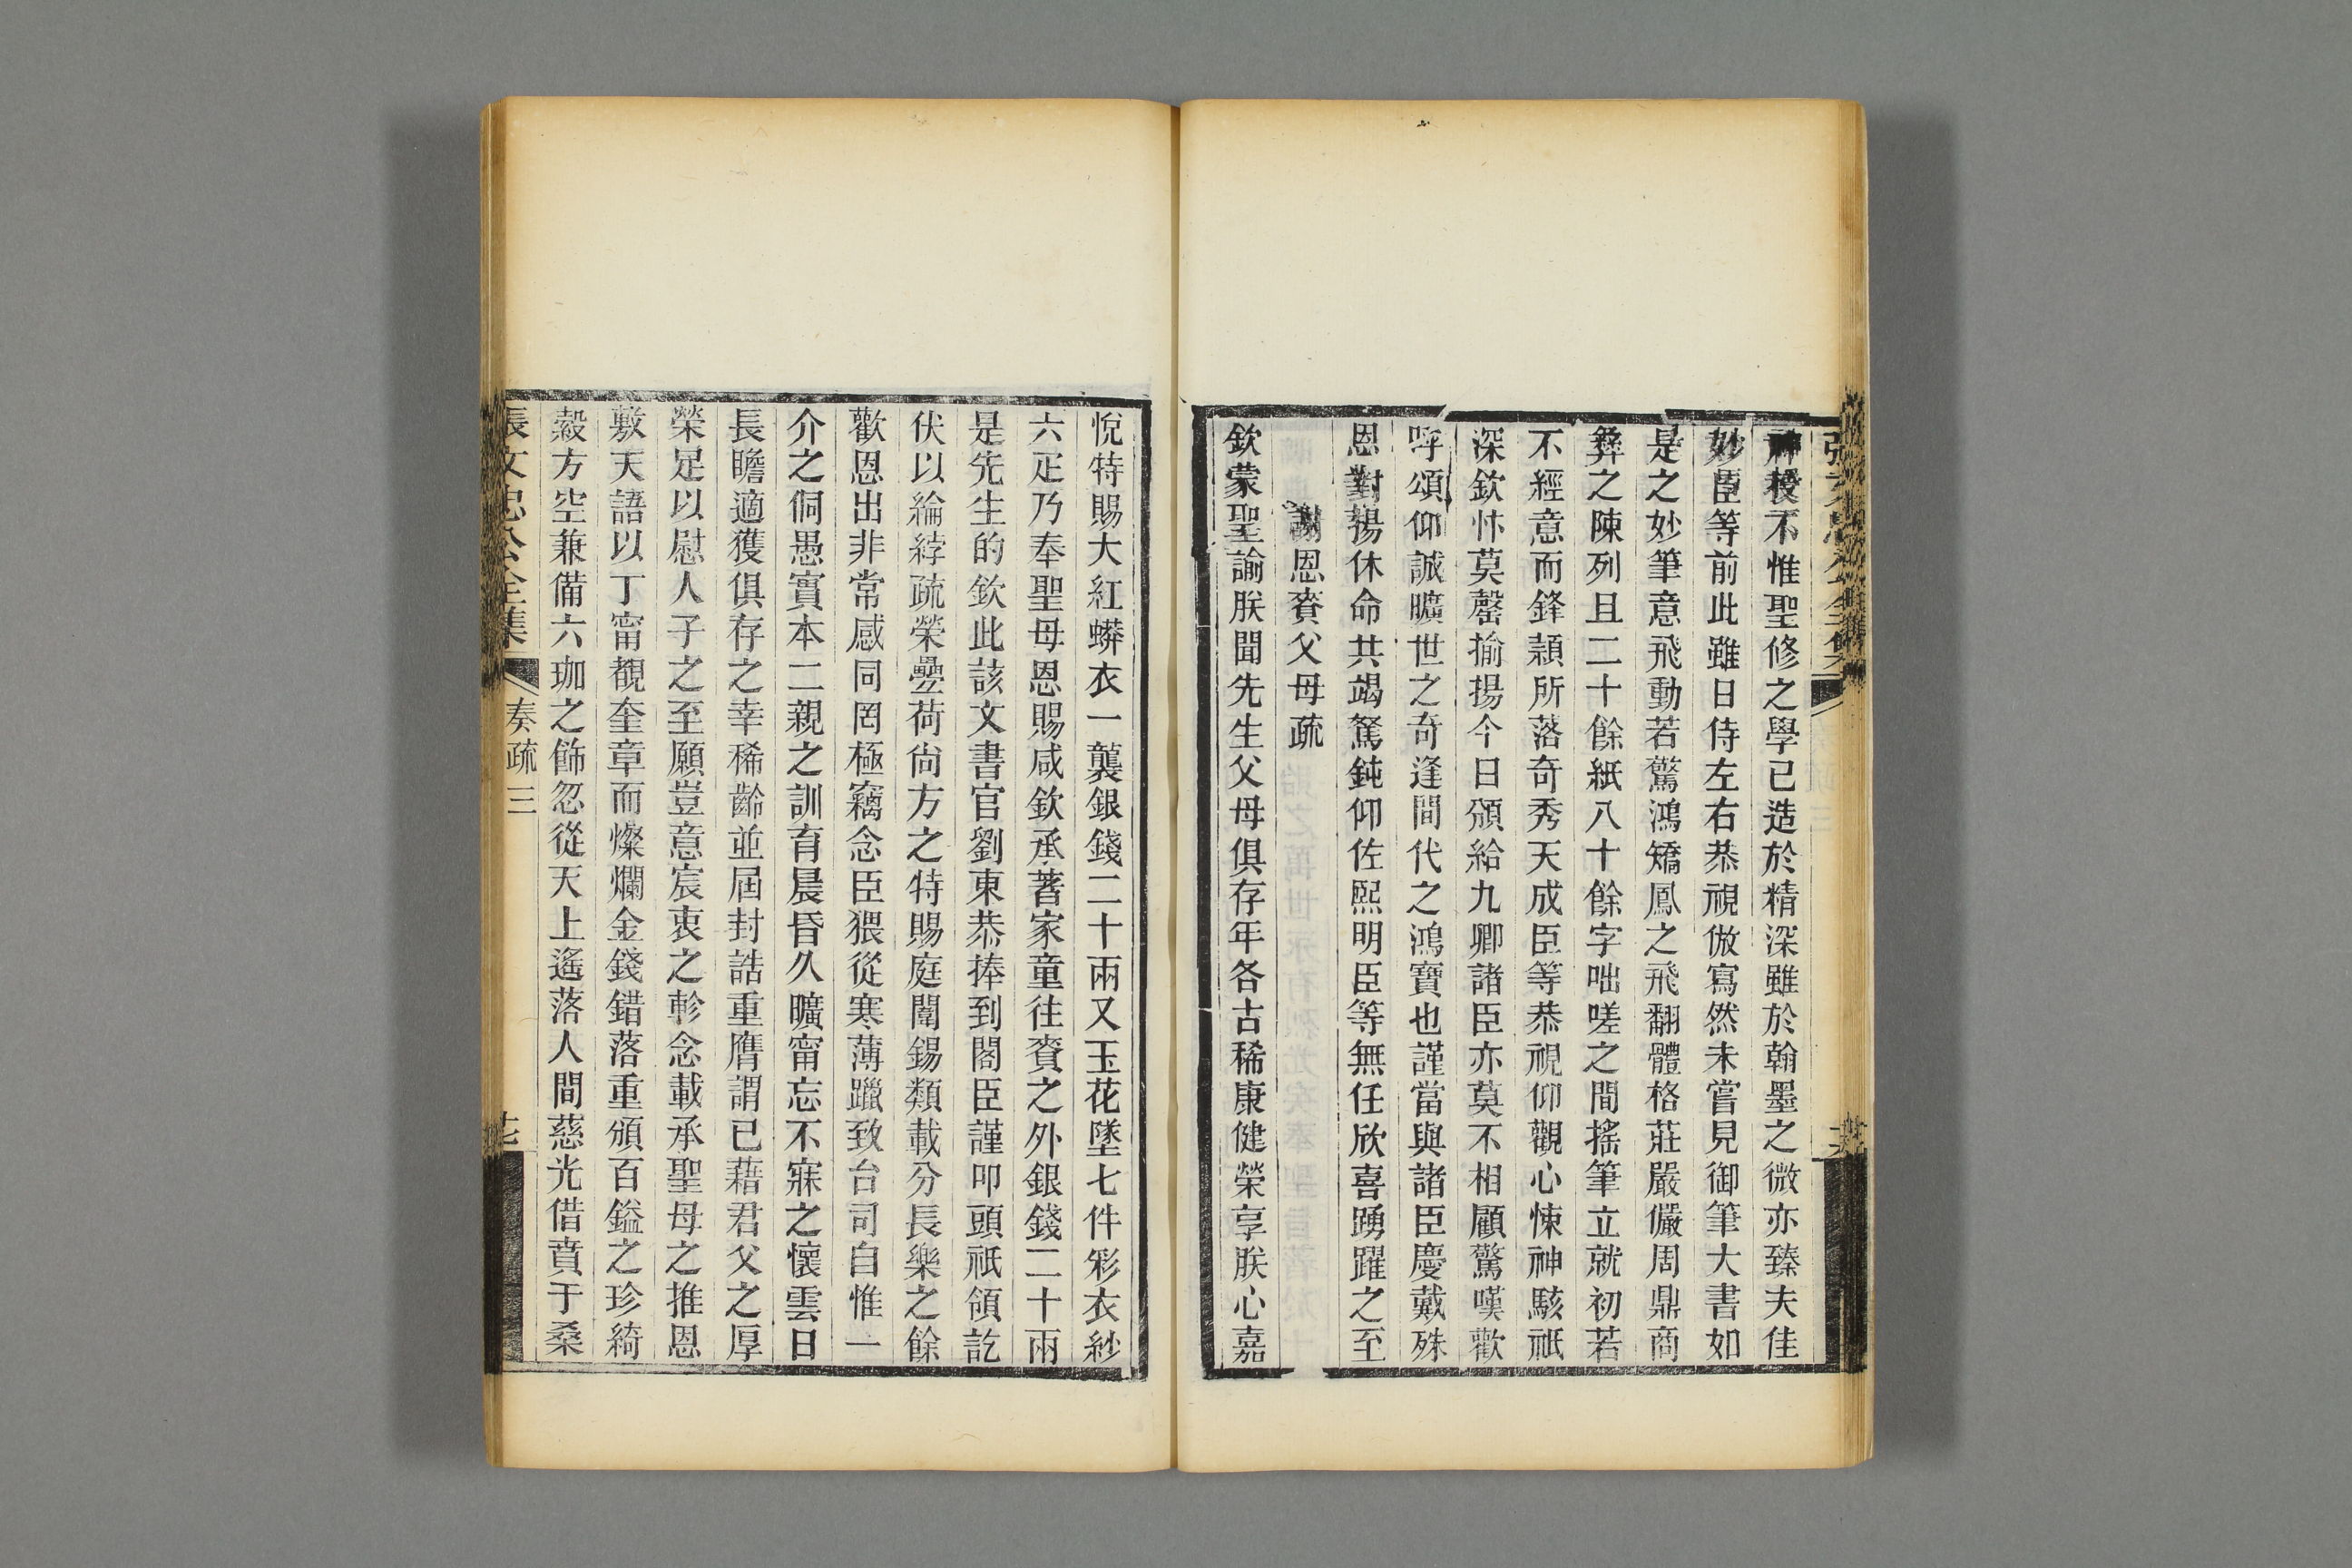 神授不惟聖修之學已造於精深雖於翰墨之微亦臻夫佳
妙臣等前此雖日侍左右恭視倣寫然未嘗見御筆大書如
是之妙筆意飛動若驚鴻矯鳳之飛翻體格莊嚴儼周鼎商
彝之陳列且二十餘紙八十餘字咄嗟之間搖筆立就初若
不經意而鋒穎所落奇秀天成臣等恭視仰觀心悚神駭祇
深欽忭莫罄揄揚今日頒給九卿諸臣亦莫不相顧驚嘆歡
呼頌仰誠曠世之奇逢間代之鴻寶也謹當與諸臣慶戴殊
恩對揚休命共竭駑鈍仰佐熙明臣等無任欣喜踴躍之至
謝恩賚父母疏
欽蒙聖諭朕聞先生父母俱存年各古稀康健榮享朕心嘉
悅特賜大紅蟒衣一襲銀錢二十兩又玉花墜七件彩衣紗
六疋乃奉聖母恩賜咸欽承著家童往賚之外銀錢二十兩
是先生的欽此該文書官劉東恭捧到閣臣謹叩頭祇領訖
伏以綸綍疏榮疊荷尙方之特賜庭闈錫類載分長樂之餘
歡恩出非常感同罔極竊念臣猥從寒薄躐致台司自惟一
介之侗愚實本二親之訓育晨昏久曠甯忘不寐之懷雲日
長瞻適獲俱存之幸稀齡並屆封誥重膺謂已藉君父之厚
榮足以慰人子之至願豈意宸衷之軫念載承聖母之推恩
敷天語以丁甯覩奎章而燦爛金錢錯落重頒百鎰之珍綺
縠方空兼備六珈之飾忽從天上遙落人間慈光借賁于桑
張文忠公全集 奏疏三